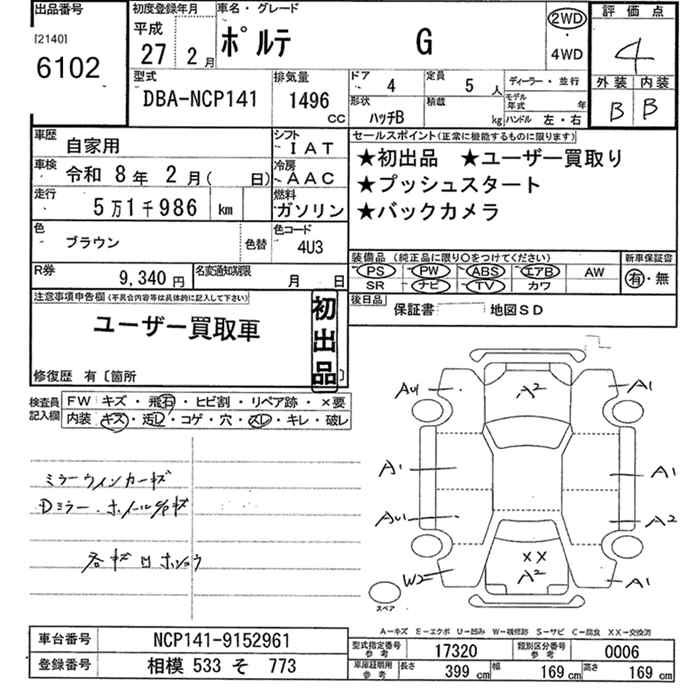 出品番号
[2140]
6102
初度登録年月
平成
27 2月
車名・グレード
ポルテ G
2WD
・
4WD
評価点
4
外装 内装
B B
型式
DBA-NCP141
排気量
1496 CC
ドア 4
定員 5 人
形状 ハッチB
積載 kg
ディーラー・並行
モデル年式 年
ハンドル 左・右
車歴 自家用
シフト IAT
車検 令和 8年 2月( 日)
冷房 AAC
走行 5万1千986 km
燃料 ガソリン
色 ブラウン
色替
色コード 4U3
R券 9,340円
名変通知期限 月 日
セールスポイント(正常に機能するものに限ります)
★初出品 ★ユーザー買取り
★プッシュスタート
★バックカメラ
装備品 (純正品に限り○をつけてください)
PS PW ABS エアB AW
SR ナビ TV カワ
新車保証書
有・無
後日品 保証書 地図SD
注意事項申告欄(不具合内容等は具体的に記入して下さい)
ユーザー買取車
初出品
修復歴 有〔箇所 〕
検査員記入欄
FW キズ・飛石・ヒビ割・リペア跡・×要
内装 キズ・汚レ・コゲ・穴・スレ・キレ・破レ
ミラーウインカーキズ
Dミラー・ホイールキズ
各キズ凹ホショウ
A2
AU1 A1
A1 A1
AU1 A2
XX
A2
W2 A1
スペア
A-キズ E-エクボ U-凹み W-補修跡 S-サビ C-腐食 XX-交換済
車台番号 NCP141-9152961
登録番号 相模 533 そ 773
型式指定番号 参考 17320
類別区分番号 参考 0006
車庫証明用 参考
長さ 399 cm
幅 169 cm
高さ 169 cm